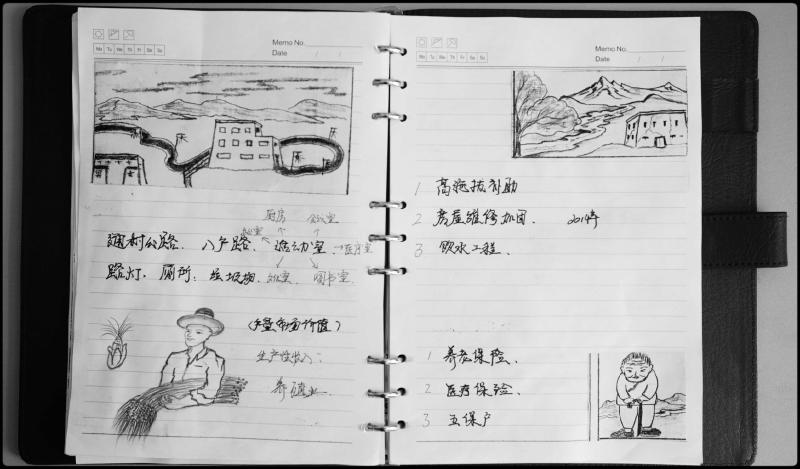 Memo No.
Mo Tu We Th Fr Sa Su
Date / /
厨房 会议室
办公室
通村公路、入户路、活动室、医疗室
路灯、厕所、垃圾池、 图书室
(产量市场价值)
生产性收入:
养殖业
Memo No.
Mo Tu We Th Fr Sa Su
Date / /
1 高海拔补助
2 房屋维修加固、 2014年
3 饮水工程、
1 养老保险、
2 医疗保险、
3 五保户